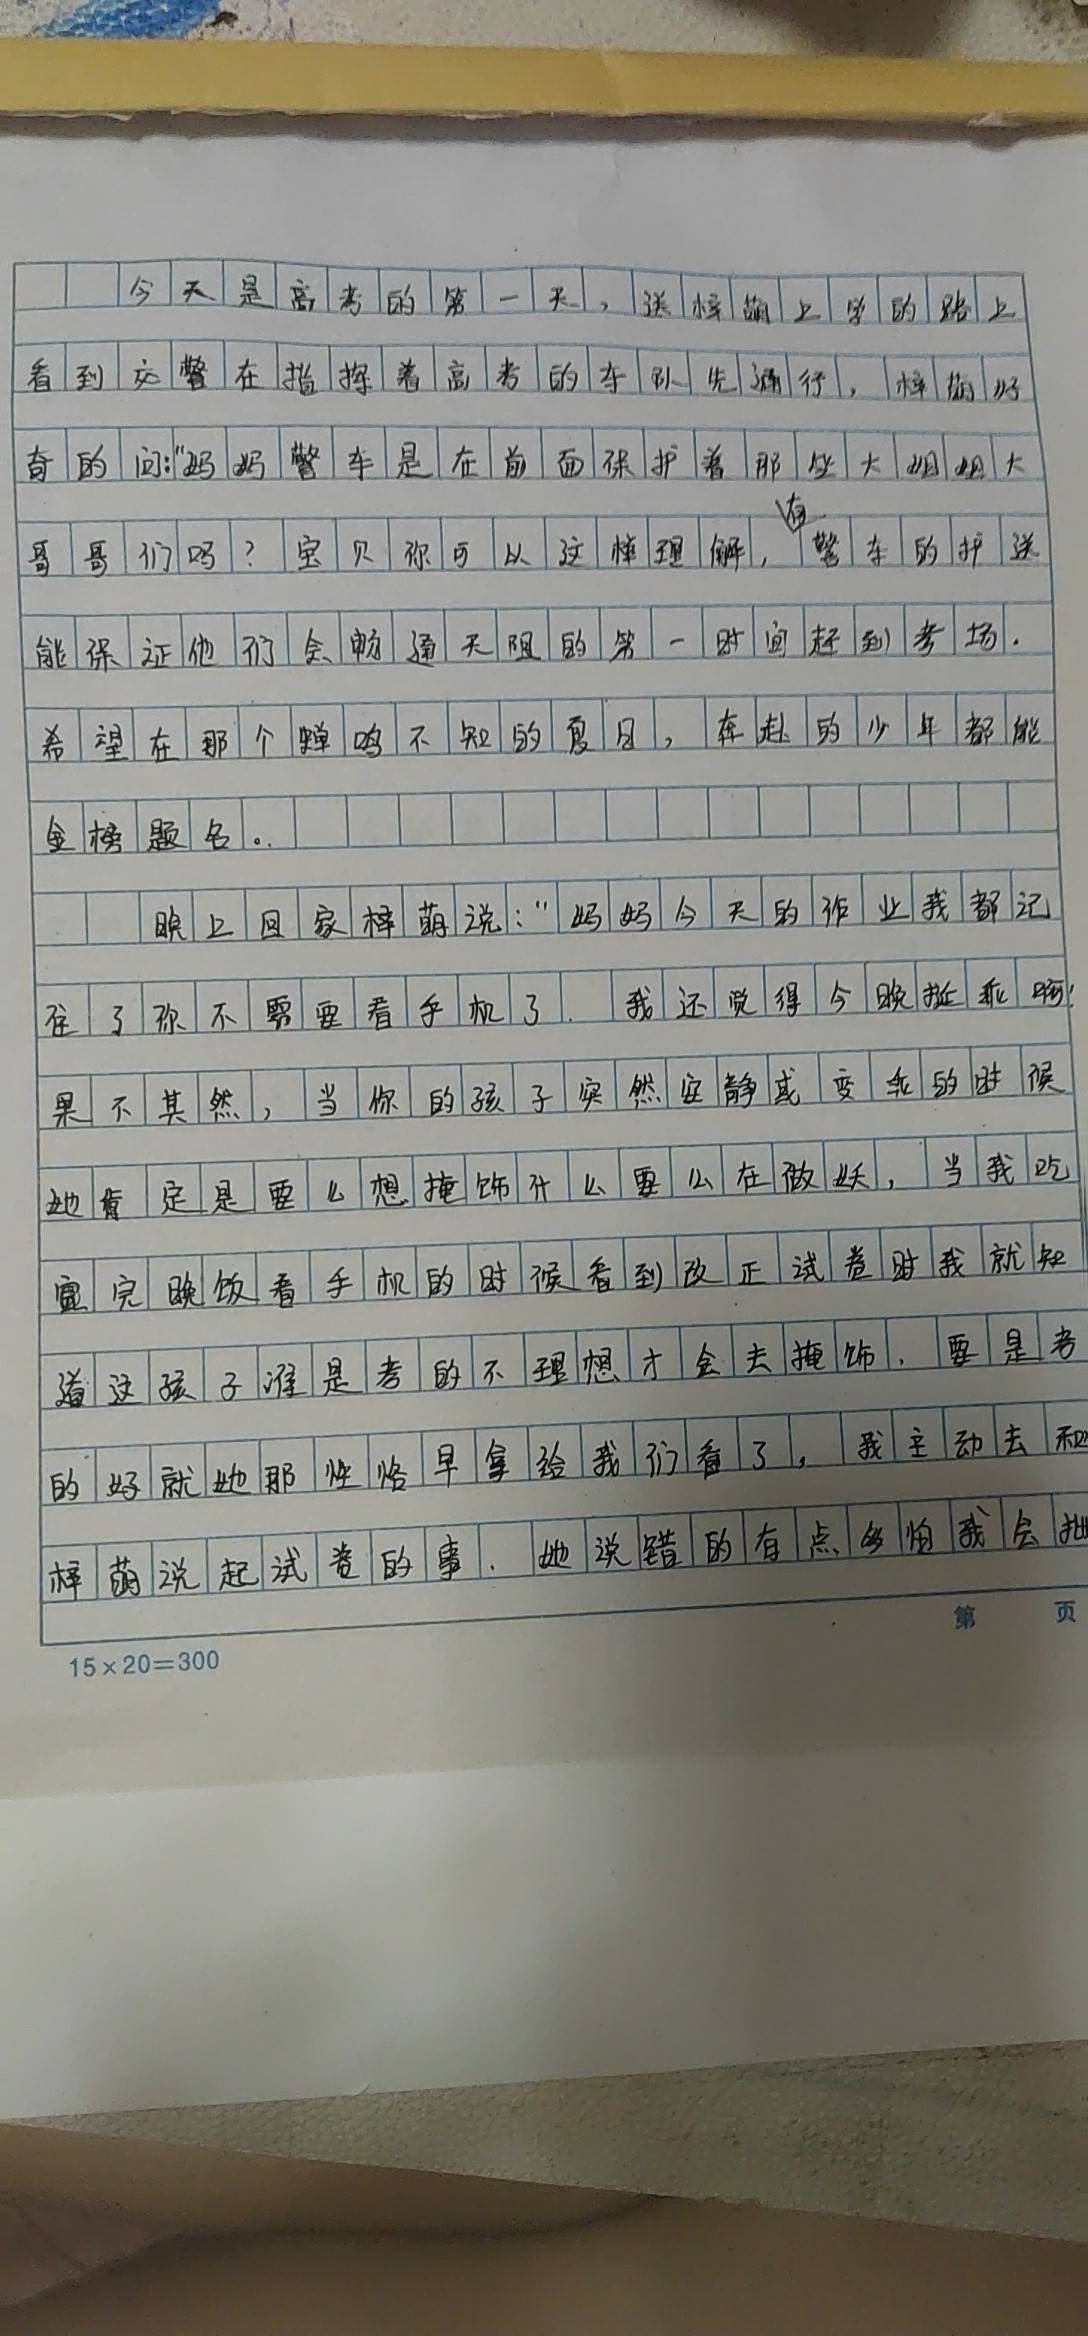 今天是高考的第一天，送梓萌上学的路上
看到交警在指挥着高考的车队先通行，梓萌好
奇的问："妈妈警车是在前面保护着那些大姐姐大
哥哥们吗？宝贝你可以这样理解，有警车的护送
能保证他们会畅通无阻的第一时间赶到考场.
希望在那个蝉鸣不知的夏日，奔赴的少年都能
金榜题名。
晚上回家梓萌说："妈妈今天的作业我都记
住了你不需要看手机了.我还觉得今晚挺乖啊!
果不其然，当你的孩子突然安静或变乖的时候
她肯定是要么想掩饰什么要么在做妖，当我吃
完晚饭看手机的时候看到改正试卷时我就知
道这孩子准是考的不理想才会去掩饰.要是考
的好就她那性格早拿给我们看了，我主动去和
梓萌说起试卷的事.她说错的有点多怕我会批
15×20=300
第 页